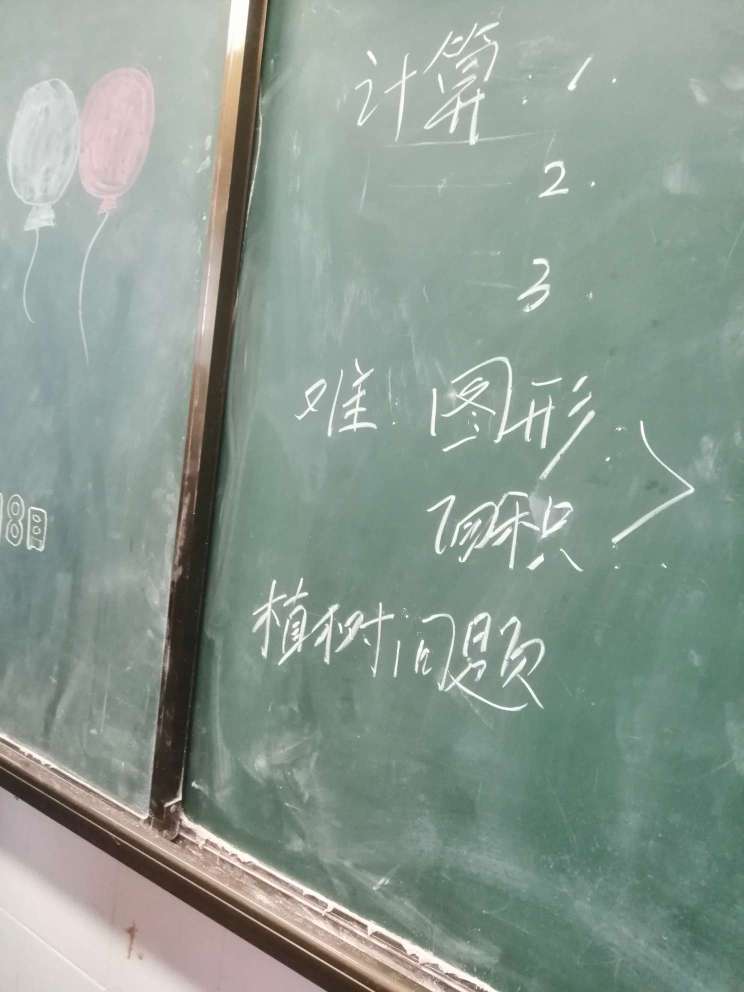 计算:1.
2.
3.
难:图形
面积
植树问题
18日